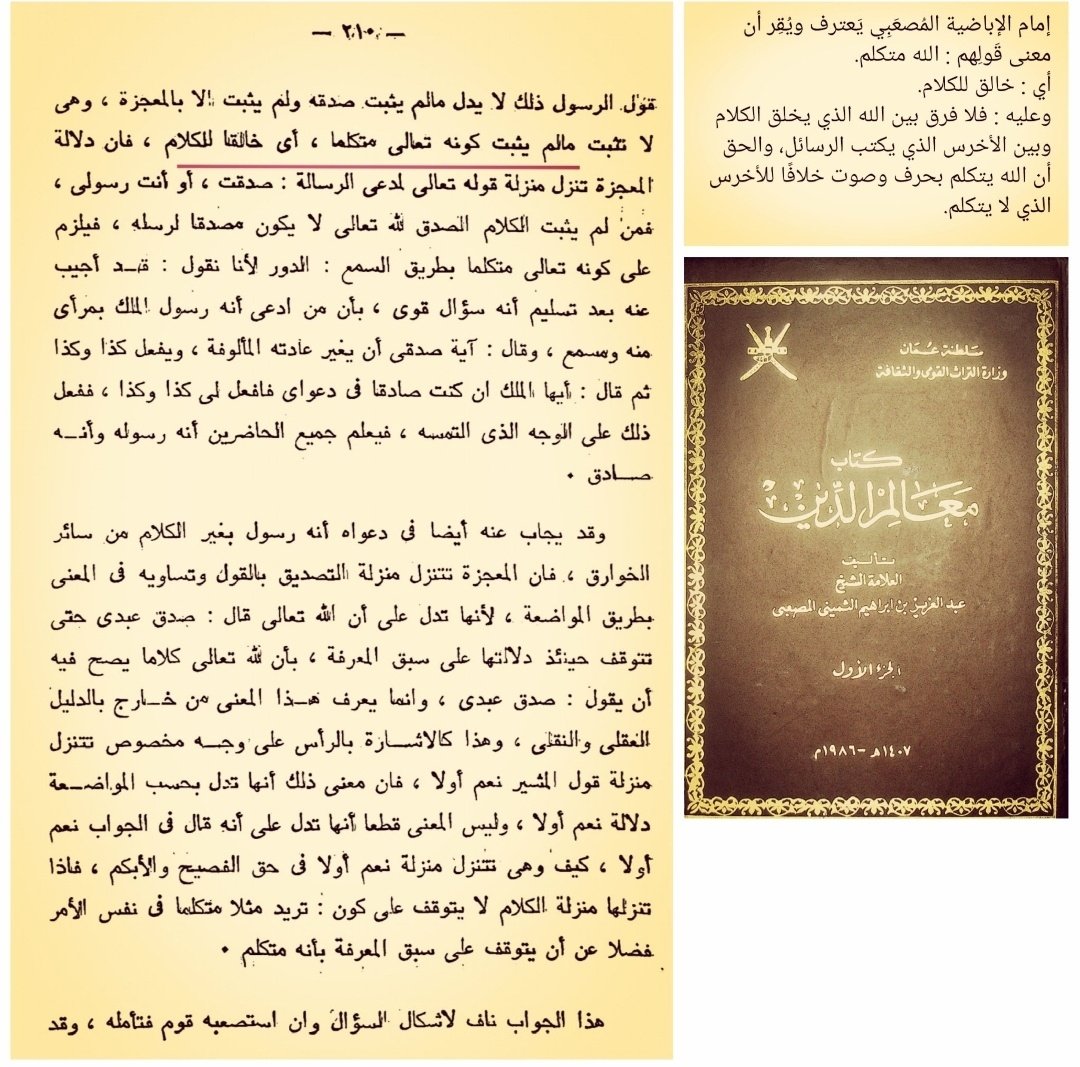 — ٢١٠ —
قول الرسول ذلك لا يدل مالم يثبت صدقه ولم يثبت الا بالمعجزة ، وهى
لا تثبت مالم يثبت كونه تعالى متكلما ، أى خالقا للكلام ، فان دلالة
المعجزة تنزل منزلة قوله تعالى لمدعى الرسالة : صدقت ، أو أنت رسولى ،
فمن لم يثبت الكلام الصدق لله تعالى لا يكون مصدقا لرسله ، فيلزم
على كونه تعالى متكلما بطريق السمع : الدور لأنا نقول : قـد أجيب
عنه بعد تسليم أنه سؤال قوى ، بأن من ادعى أنه رسول الملك بمرأى
منه ومسمع ، وقال : آية صدقى أن يغير عادته المألوفة ، ويفعل كذا وكذا
ثم قال : أيها الملك ان كنت صادقا فى دعواى فافعل لى كذا وكذا ، ففعل
ذلك على الوجه الذى التمسه ، فيعلم جميع الحاضرين أنه رسوله وأنـه
صـادق .
وقد يجاب عنه أيضا فى دعواه أنه رسول بغير الكلام من سائر
الخوارق ، فان المعجزة تتنزل منزلة التصديق بالقول وتساويه فى المعنى
بطريق المواضعة ، لأنها تدل على أن الله تعالى قال : صدق عبدى حتى
تتوقف حينئذ دلالتها على سبق المعرفة ، بأن لله تعالى كلاما يصح فيه
أن يقول : صدق عبدى ، وانما يعرف هـذا المعنى من خـارج بالدليل
العقلى والنقلى ، وهذا كالاشـارة بالرأس على وجـه مخصوص تتنزل
منزلة قول المشير نعم أولا ، فان معنى ذلك أنها تدل بحسب المواضـعة
دلالة نعم أولا ، وليس المعنى قطعا أنها تدل على أنه قال فى الجواب نعم
أولا ، كيف وهى تتنزل منزلة نعم أولا فى حق الفصيح والأبكم ، فاذا
تنزلها منزلة الكلام لا يتوقف على كون : تريد مثلا متكلما فى نفس الأمر
فضلا عن أن يتوقف على سبق المعرفة بأنه متكلم .
هذا الجواب ناف لاشكال السؤال وان استصعبه قوم فتأمله ، وقد
إمام الإباضية المُصعَبِي يَعترف ويُقِر أن
معنى قَولِهم : الله متكلم.
أي : خالق للكلام.
وعليه : فلا فرق بين الله الذي يخلق الكلام
وبين الأخرس الذي يكتب الرسائل، والحق
أن الله يتكلم بحرف وصوت خلافًا للأخرس
الذي لا يتكلم.
سلطنة عُمان
وزارة التراث القومى والثقافة
كتاب
مَعَالِمُ الدِّين
تأليف
العلامة الشيخ
عبد العزيز بن ابراهيم الثمينى المصعبى
الجزء الأول
١٤٠٧هـ - ١٩٨٦م